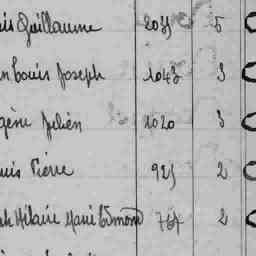 is Guillaume 2039 5
n Louis Joseph 1043 3
gène Julien 1020 3
uis Pierre 923 2
ph Hilaire Marie Edmond 767 2